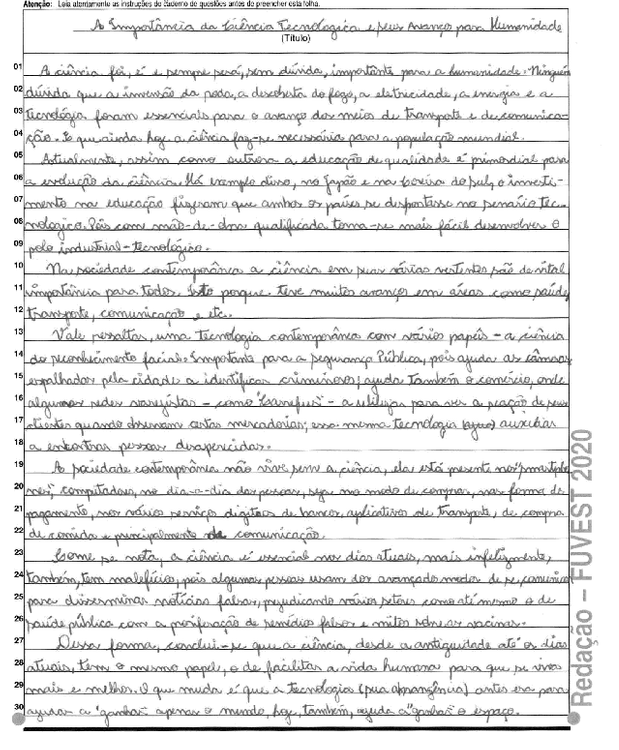 Atenção: Leia atentamente as instruções do caderno de questões antes de preencher esta folha.
A Importância da Ciência Tecnologica e seus Avanço para Humanidade
(Título)
01 A ciência foi, é e sempre será, sem dúvida, importante para a humanidade. Ninguém
02 dúvida que a invensão da roda, a descoberta do fogo, a eletricidade, a energia e a
03 tecnológia foram essenciais para o avanço dos meios de transporte e de comunica-
04 ção. E que ainda hoje a ciência faz-se necessária para a população mundial.
05 Actualmente, assim como outrora a educação de qualidade é primordial para
06 a evolução da ciência. Há exemplo disso, no Japão e na Coreia do Sul, o investi-
07 mento na educação fizeram que ambos os países se despontasse no senário tec-
08 nologico. Pois com mão-de-obra qualificada torna-se mais fácil desenvolver o
09 polo industrial-tecnológico.
10 Na sociedade contemporânea a ciência em suas várias vertentes são de vital
11 importância para todos. Isto porque teve muitos avanços em áreas como saúde,
12 transporte, comunicação e etc.
13 Vale ressaltar, uma tecnologia contemporânea com vários papéis - a ciência
14 do reconhecimento facial. Importante para a segurança Pública, pois ajuda as câmaras
15 espalhadas pela cidade a identificar criminosos; ajuda também o comércio, onde
16 algumas redes varejistas - como "Carrefur" - a utilizar para ver a reação de seus
17 clientes quando observam certas mercadorias; essa mesma tecnologia auxiliar
18 a encontrar pessoas desaparecidas.
19 A sociedade contemporânea não vive sem a ciência, ela está presente nos "smartpho
20 nes", computadores, no dia-a-dia das pessoas, seja no modo de compras, nas forma de
21 pagamento, nos vários serviços digitais de bancos, aplicativos de transporte, de compra
22 de comida e principalmente de comunicação.
23 Come se nota, a ciência é essencial nos dias atuais, mais infelizmente,
24 também, tem malefício, pois algumas pessoas usam dos avançado modos de se comunicar
25 para disseminar notícias falsas, prejudicando vários setores como até mesmo o de
26 saúde pública com a proliferação de remédio falsos e mitos sobre as vacinas.
27 Dessa forma, conclui-se que a ciência, desde a antiguidade até os dias
28 atuais, tem o mesmo papel, o de facilitar a vida humana para que se viva
29 mais e melhor. O que muda é que a tecnologia (sua abrangência) antes era para
30 ajudar a "ganhar" apenas o mundo, hoje, também, ajuda a "ganhar" o espaço.
Redação – FUVEST 2020